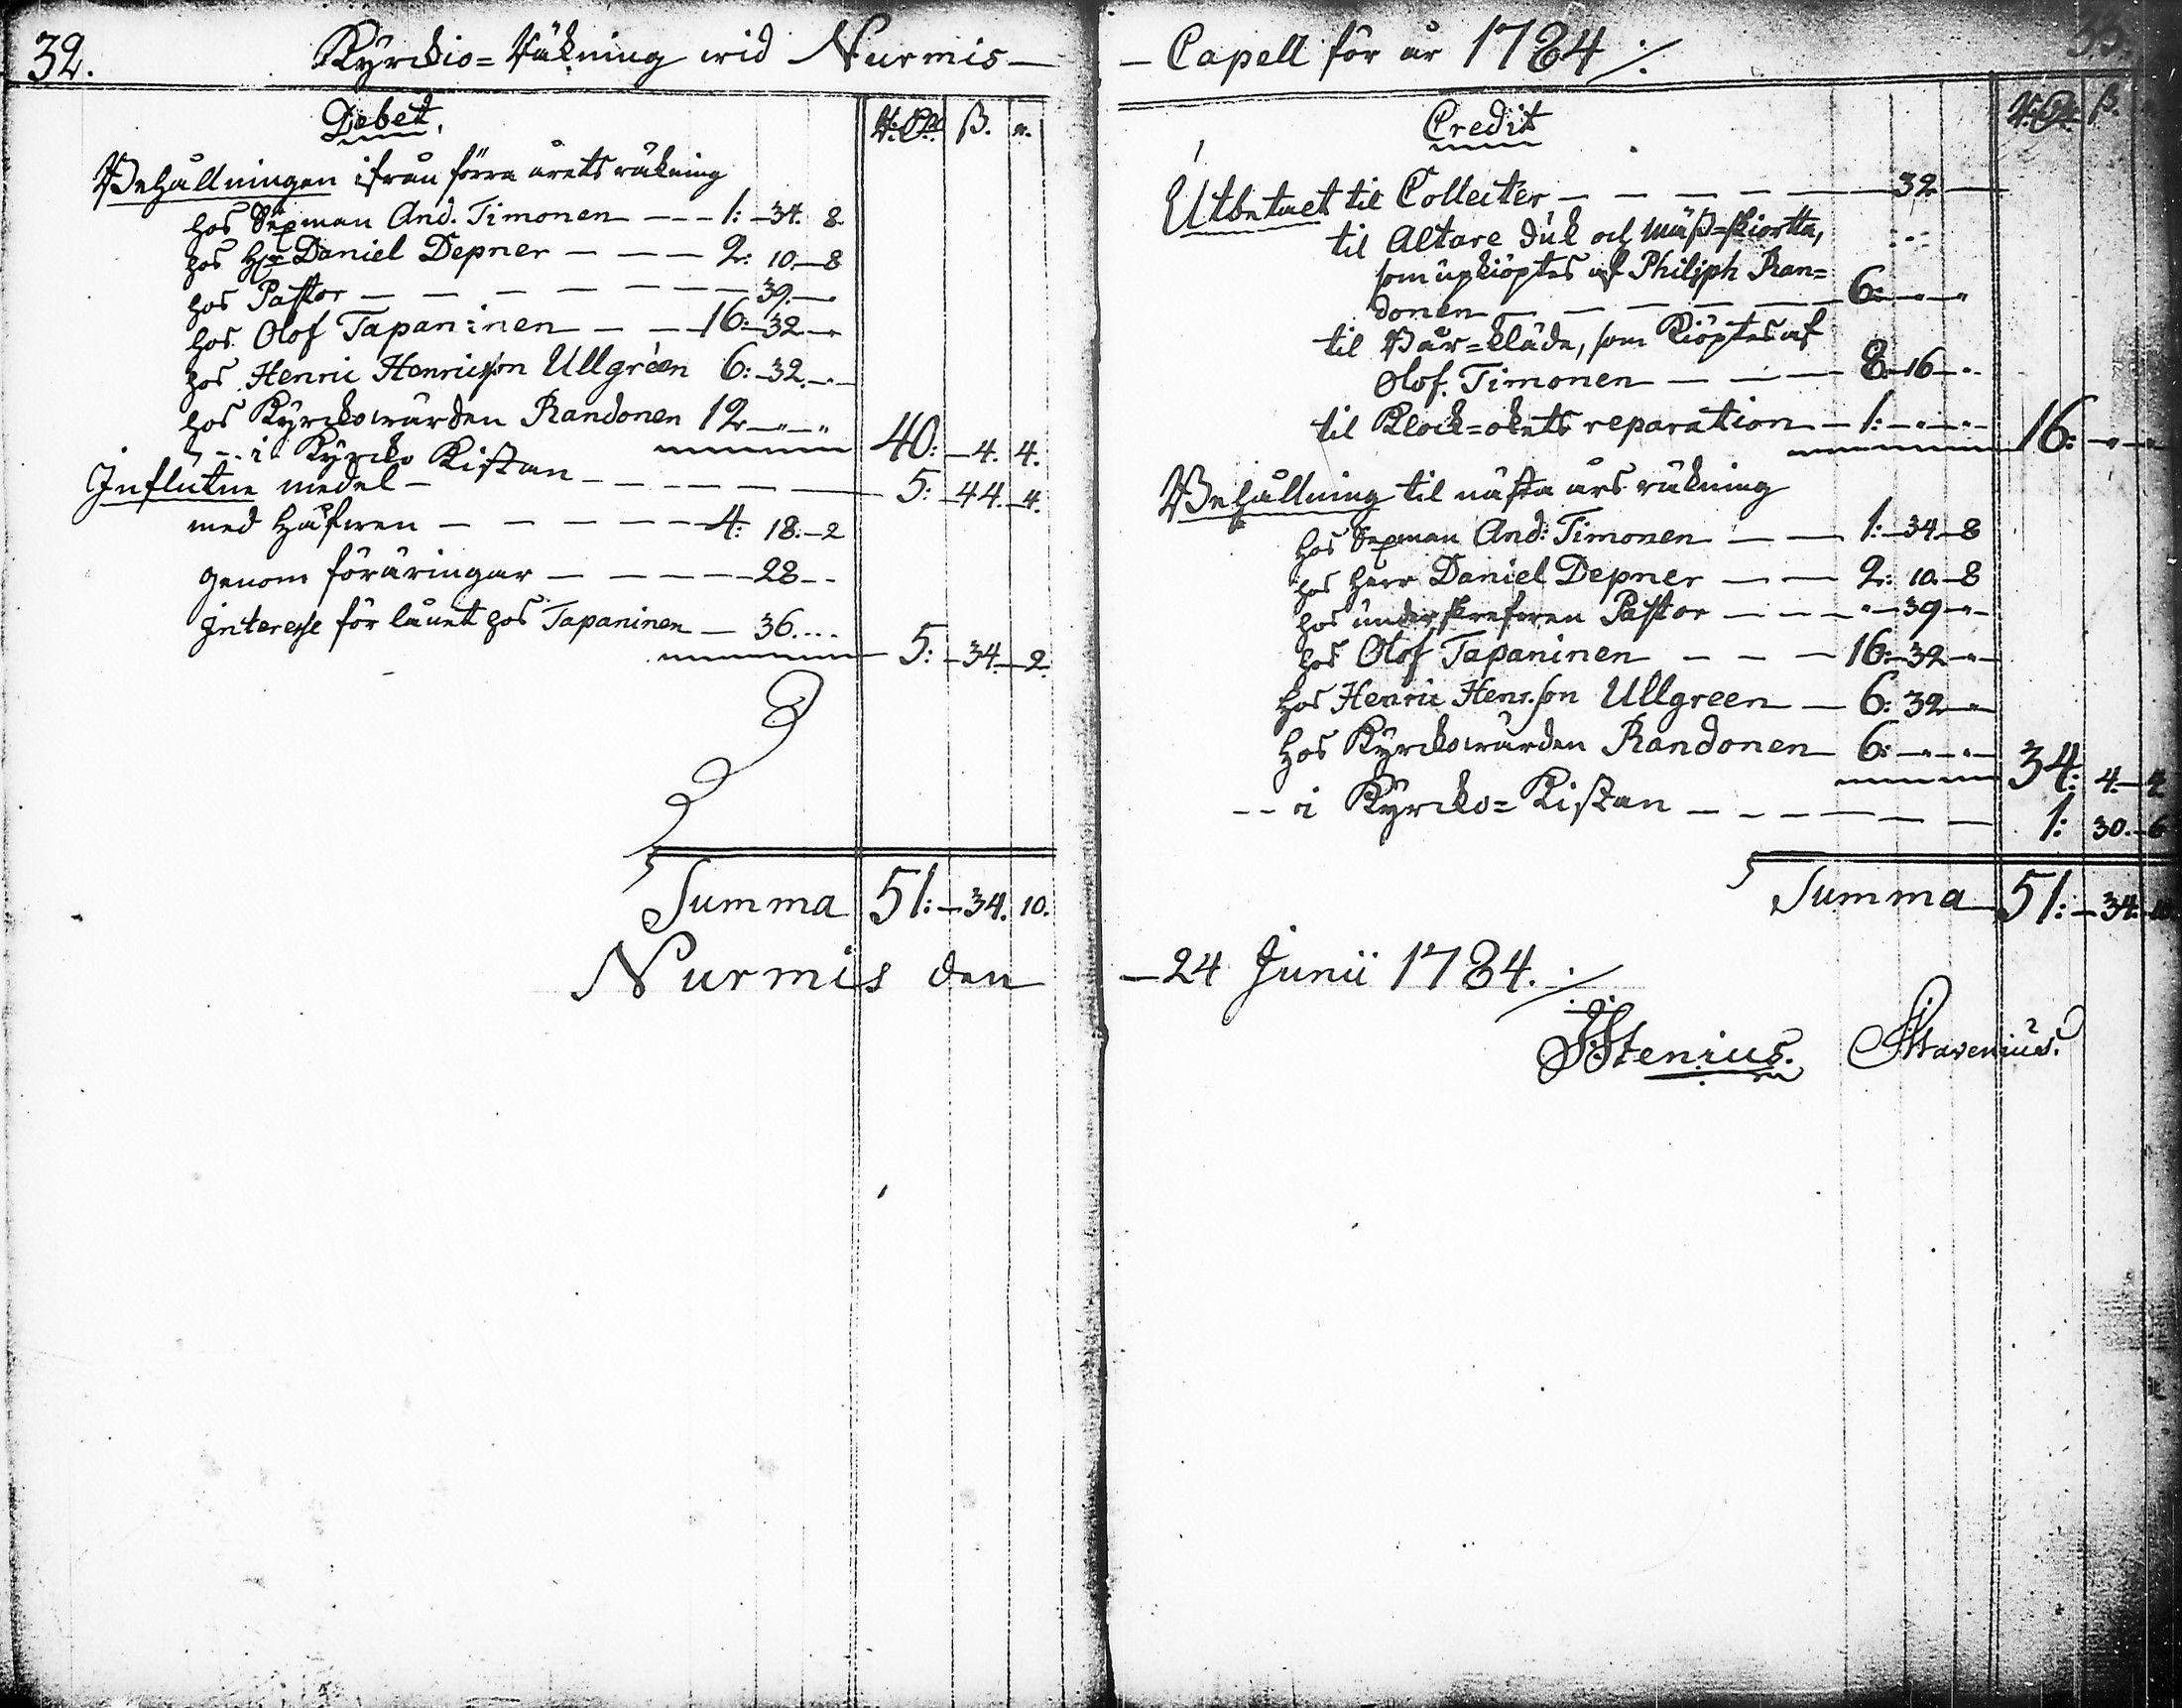 32.
Kyrckio=Räkning wid Nurmis
Debet.
R:Dr. ß. r.
Behållningen ifrån förra årets räkning
hos Sexman And. Timonen 1: 34. 8.
hos Hr Daniel Depner 2: 10. 8
hos Pastor 39.
hos Olof Tapaninen 16: 32
hos Henric Henricsson Ullgréen 6: 32.
hos Kyrckowärden Randonen 12 40: 4. 4.
i Kyrcko Kistan 5: 44. 4.
Influtne medel
med Håfwen 4: 18. 2
genom föräringar 28
Interesse för lånet hos Tapaninen 36. 5: 34. 2.
Summa 51: 34. 10.
Nurmis den
33.
Capell för år 1784 ./.
Credit
R:Dr. ß.
Utbetact til Collecter 32
til Altare duk och mäß=skiorta,
som upkiöptes af Philiph Ran=
donen 6:
til Bår=kläde, som kiöptes af
Olof Timonen 8: 16
til Klock=okets reparation 1: 16:
Behållning til nästa års räkning
hos Sexman And: Timonen 1: 34. 8
hos Herr Daniel Depner 2: 10. 8
hos underskrefwen Pastor 39
hos Olof Tapaninen 16: 32
hos Henric Henr.son Ullgreen 6: 32
hos Kyrckowärden Randonen 6: 34: 4. 4
i Kyrcko=Kistan 1: 30. 6
Summa 51: 34. 10
24 Junii 1784. ./.
JStenius. Stavenius.